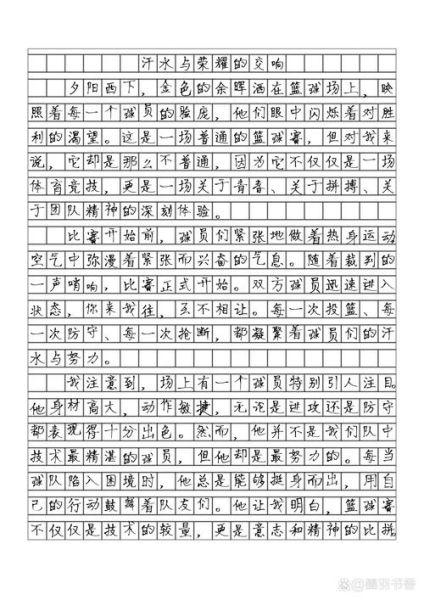 汗水与荣耀的交响
夕阳西下，金色的余晖洒在篮球场上，映
照着每一个球员的脸庞，他们眼中闪烁着对胜
利的渴望。这是一场普通的篮球赛，但对我来
说，它却是那么不普通，因为它不仅仅是一场
体育竞技，更是一场关于青春、关于拼搏、关
于团队精神的深刻体验。
比赛开始前，球员们紧张地做着热身运动
空气中弥漫着紧张而兴奋的气息。随着裁判的
一声哨响，比赛正式开始。双方球员迅速进入
状态，你来我往，互不相让。每一次投篮、每
一次防守、每一次抢断，都凝聚着球员们的汗
水与努力。
我注意到，场上有一个球员特别引人注目。
他身材高大，动作敏捷，无论是进攻还是防守
都表现得十分出色。然而，他并不是我们队中
技术最精湛的球员，但他却是最努力的。每当
球队陷入困境时，他总是能够挺身而出，用自
己的行动鼓舞着队友们。他让我明白，篮球赛
不仅仅是技术的较量，更是意志和精神的比拼。